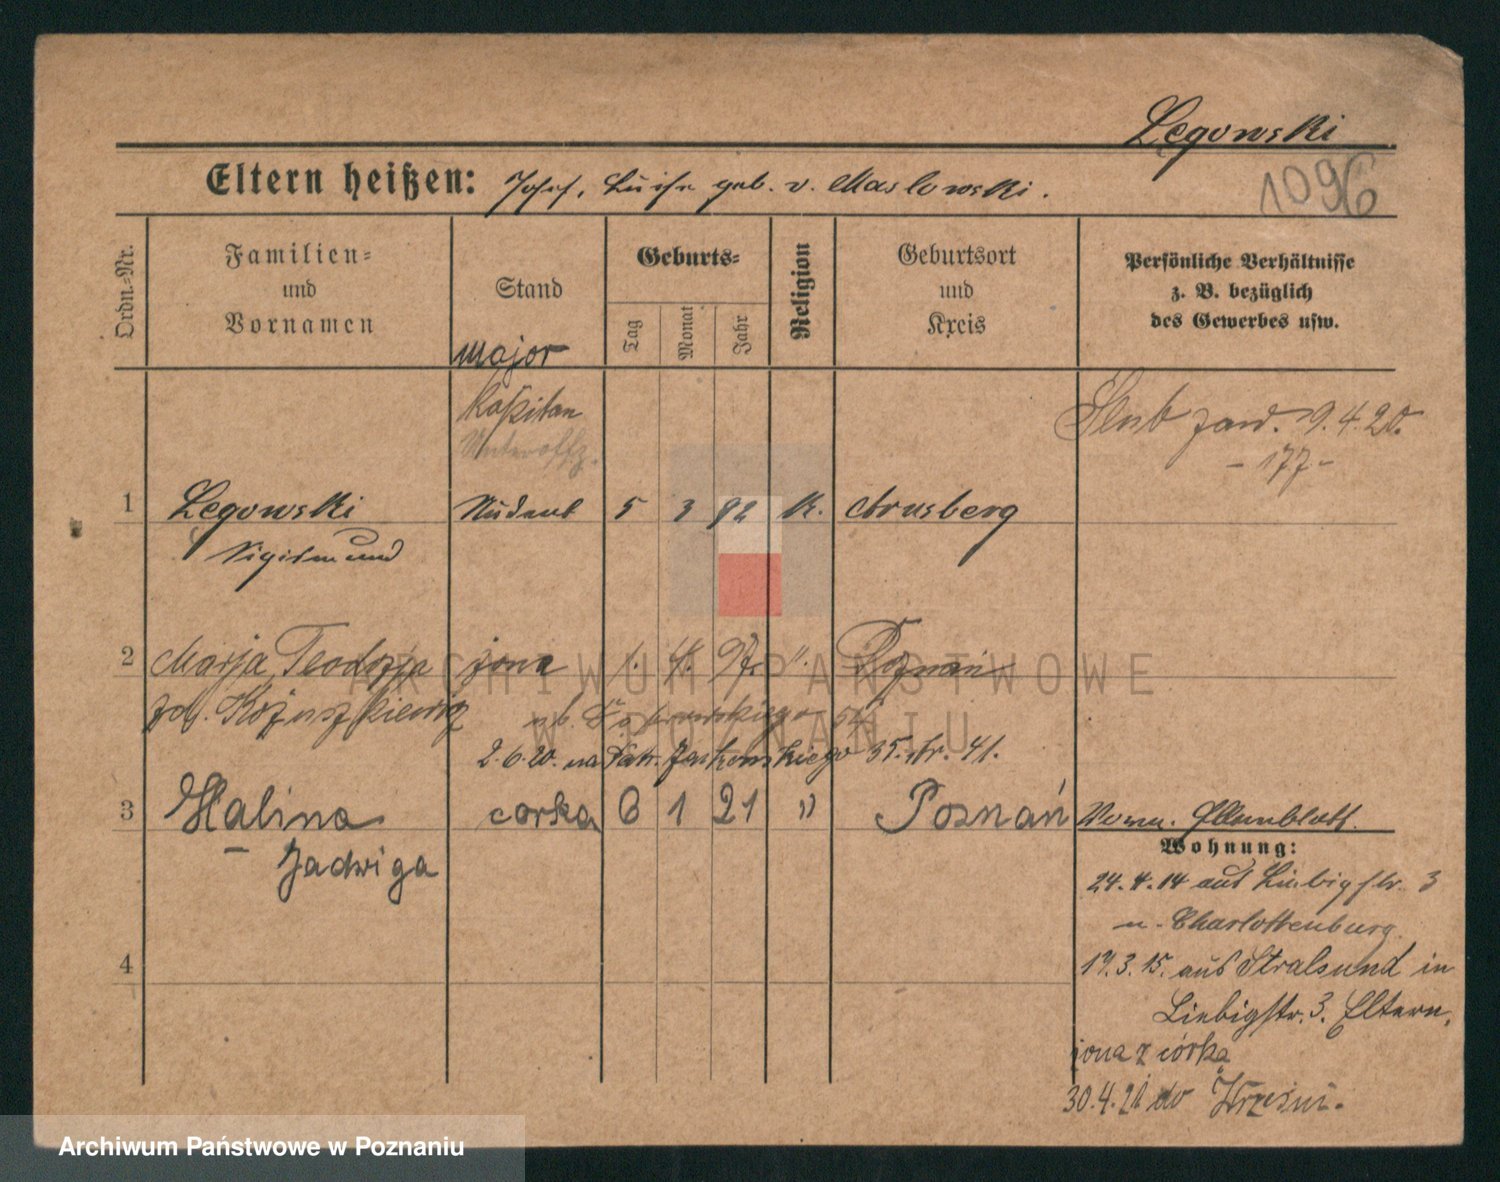 Legowski
Eltern heißen: Josef, Luise geb. v. Maslowski.
1096
Ordn.-Nr.
Familien-
und
Vornamen
Stand
Geburts-
Tag
Monat
Jahr
Religion
Geburtsort
und
Kreis
Persönliche Verhältnisse
z. B. bezüglich
des Gewerbes usw.
Major
Kapitan
Unteroffz.
Ślub zaw. 9.4.20.
- 177 -
1 Legowski Student 5 3 92 K. Arnsberg
Sigismund
2 Marja Teodozja żona 1. 4. " Poznań
2.6.20. na 35. str. 41.
3 Halina corka 6 1 21 " Poznań
Jadwiga
Elternblatt.
Wohnung:
24.4.14 aus Liebigstr. 3
n. Charlottenburg.
17.3.15. aus Stralsund in
Liebigstr. 3. Eltern.
żona z córką
30.4.21 do Wrześni.
4
ARCHIWUM PAŃSTWOWE
W POZNANIU
Archiwum Państwowe w Poznaniu